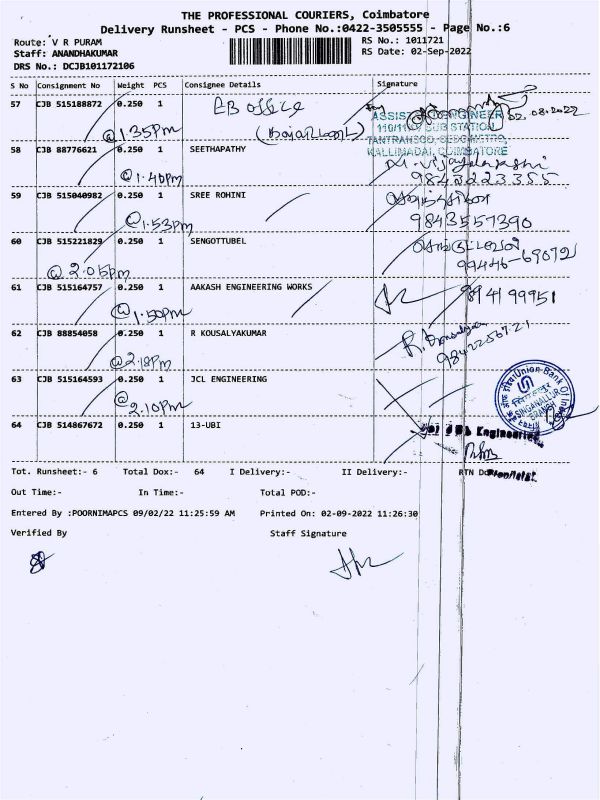 THE PROFESSIONAL COURIERS, Coimbatore
Delivery Runsheet - PCS - Phone No.:0422-3505555 - Page No.:6
Route: V R PURAM RS No.: 1011721
Staff: ANANDHAKUMAR RS Date: 02-Sep-2022
DRS No.: DCJB101172106
S No Consignment No Weight PCS Consignee Details Signature
57 CJB 515188872 0.250 1 EB office 02.08.2022
ASSISTANT ENGINEER
SUB STATION
@1.35pm
KALLIMADAI, COIMBATORE
58 CJB 88776621 0.250 1 SEETHAPATHY
@1.40pm
59 CJB 515040982 0.250 1 SREE ROHINI
9843557390
@1.53pm
60 CJB 515221829 0.250 1 SENGOTTUBEL
99446-69072
@2.05pm
61 CJB 515164757 0.250 1 AAKASH ENGINEERING WORKS
@1.50pm
62 CJB 88854058 0.250 1 R KOUSALYAKUMAR
@2.18pm
63 CJB 515164593 0.250 1 JCL ENGINEERING
Union Bank Of India
SINGANALLUR
BRANCH
@2.10pm
64 CJB 514867672 0.250 1 13-UBI
Engineering
Tot. Runsheet:- 6 Total Dox:- 64 I Delivery:- II Delivery:- RTN
Proprietor.
Out Time:- In Time:- Total POD:-
Entered By :POORNIMAPCS 09/02/22 11:25:59 AM Printed On: 02-09-2022 11:26:30
Verified By Staff Signature